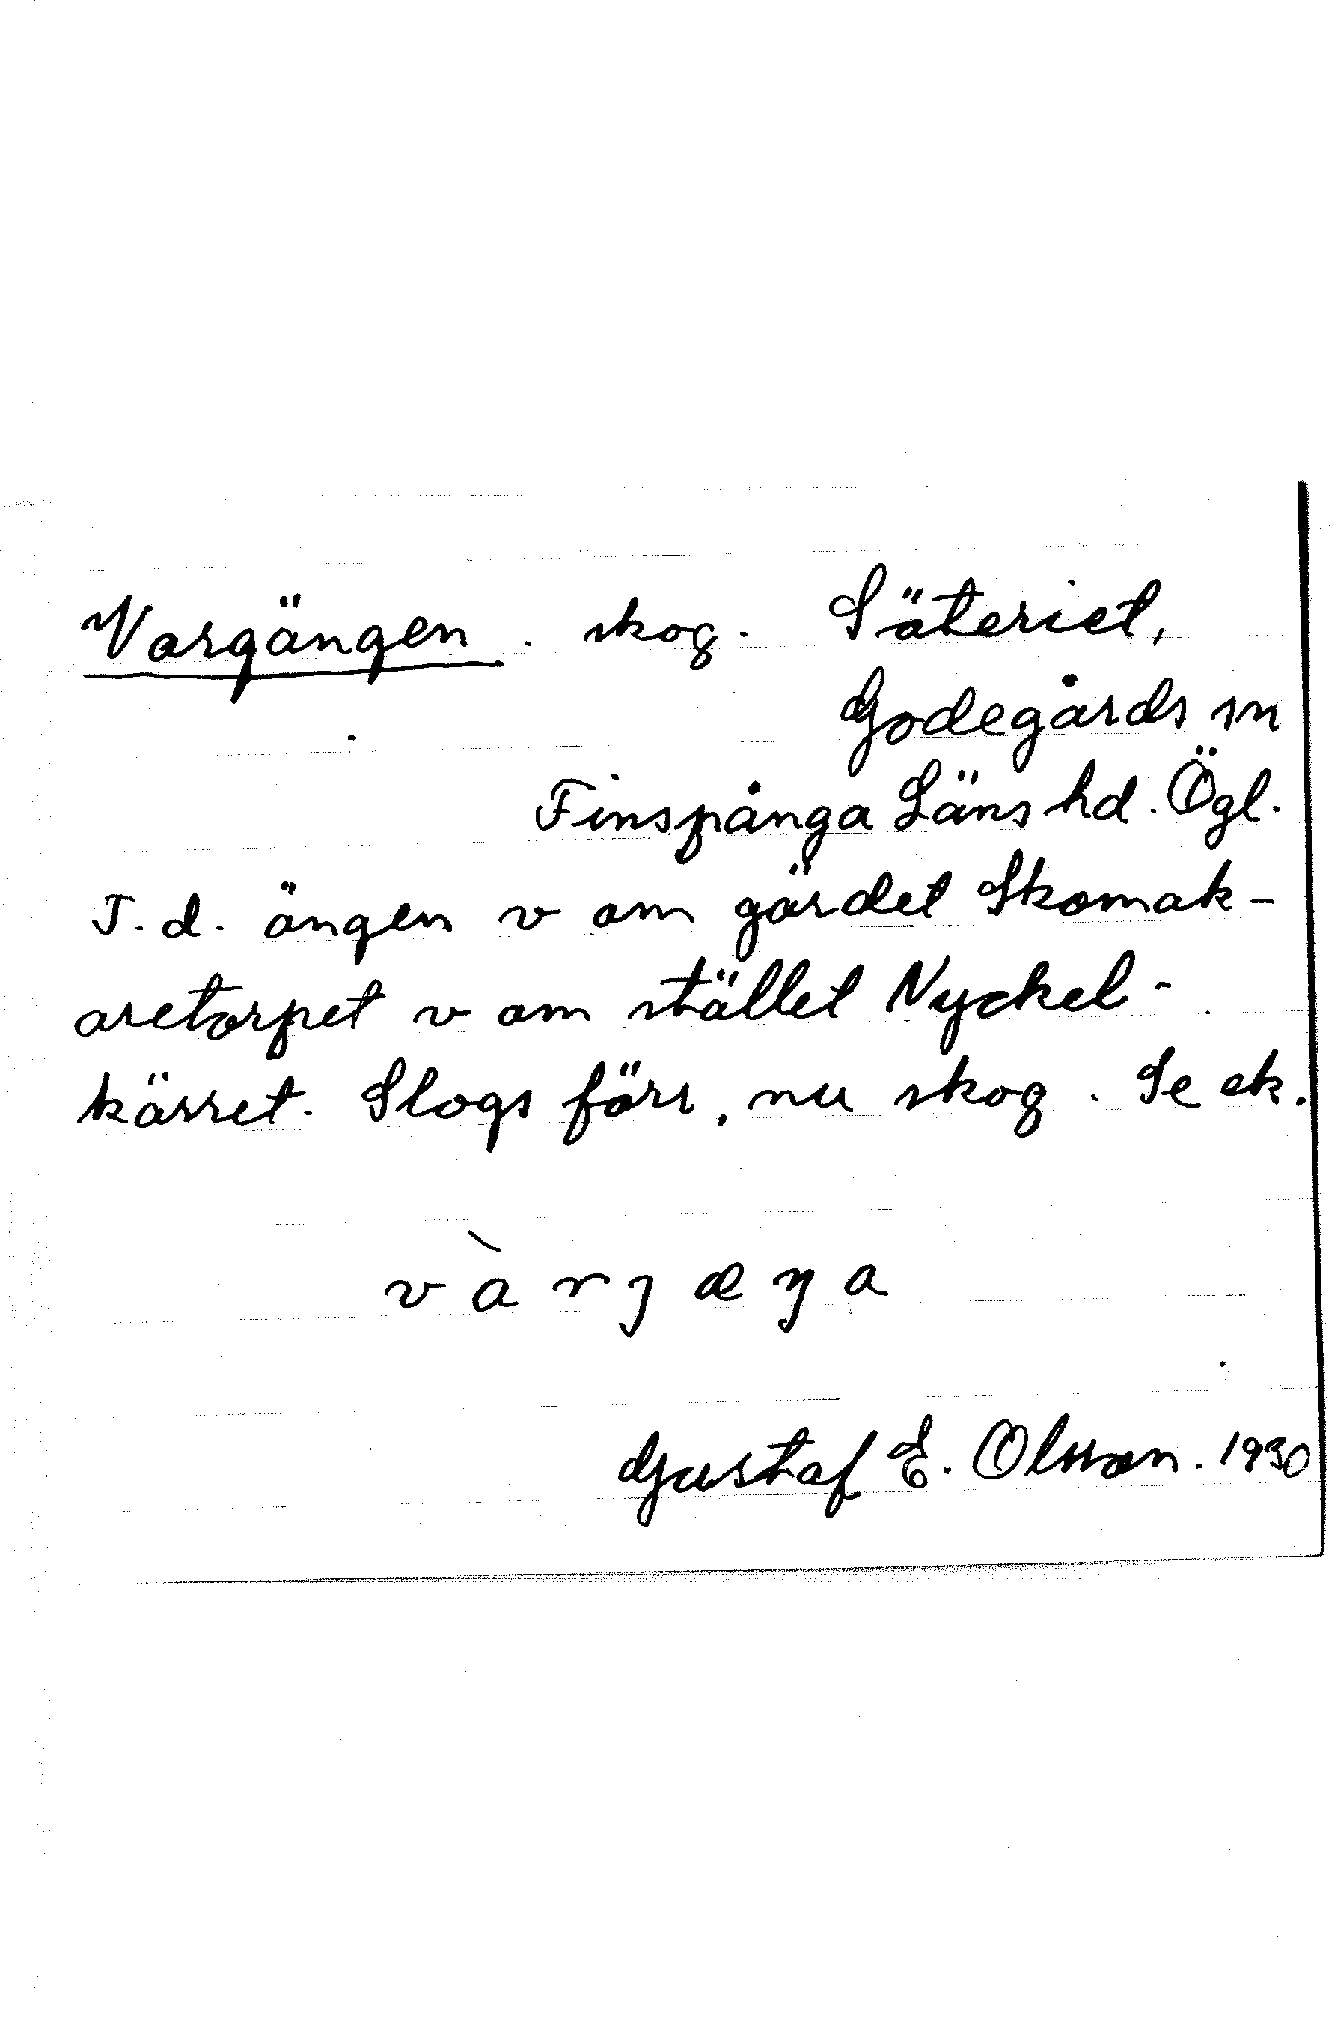 Vargängen. skog. Säteriet,
Godegårds sn
Finspånga Läns hd. Ögl.
T. d. ängen v om gärdet Skomak-
aretorpet v om stället Nyckel-
kärret. Slogs förr, nu skog. Se ek.
vàrjæŋa
Gustaf E. Olsson. 1930